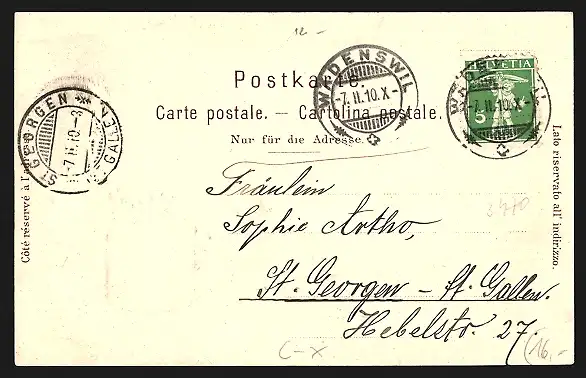 12 -
Postkarte.
WÄDENSWIL
-7.II.10.X-
HELVETIA
5
WÄDENSWIL
-7.II.10.X-
ST GEORGEN
-7.II.10-8
(ST. GALLEN)
Carte postale. — Cartolina postale.
Nur für die Adresse.
Côté réservé à l'adresse.
Lato riservato all' indirizzo.
Fräulein
Sophie Artho,
St. Georgen - St. Gallen.
Hebelstr. 27.
C-X
(16.-